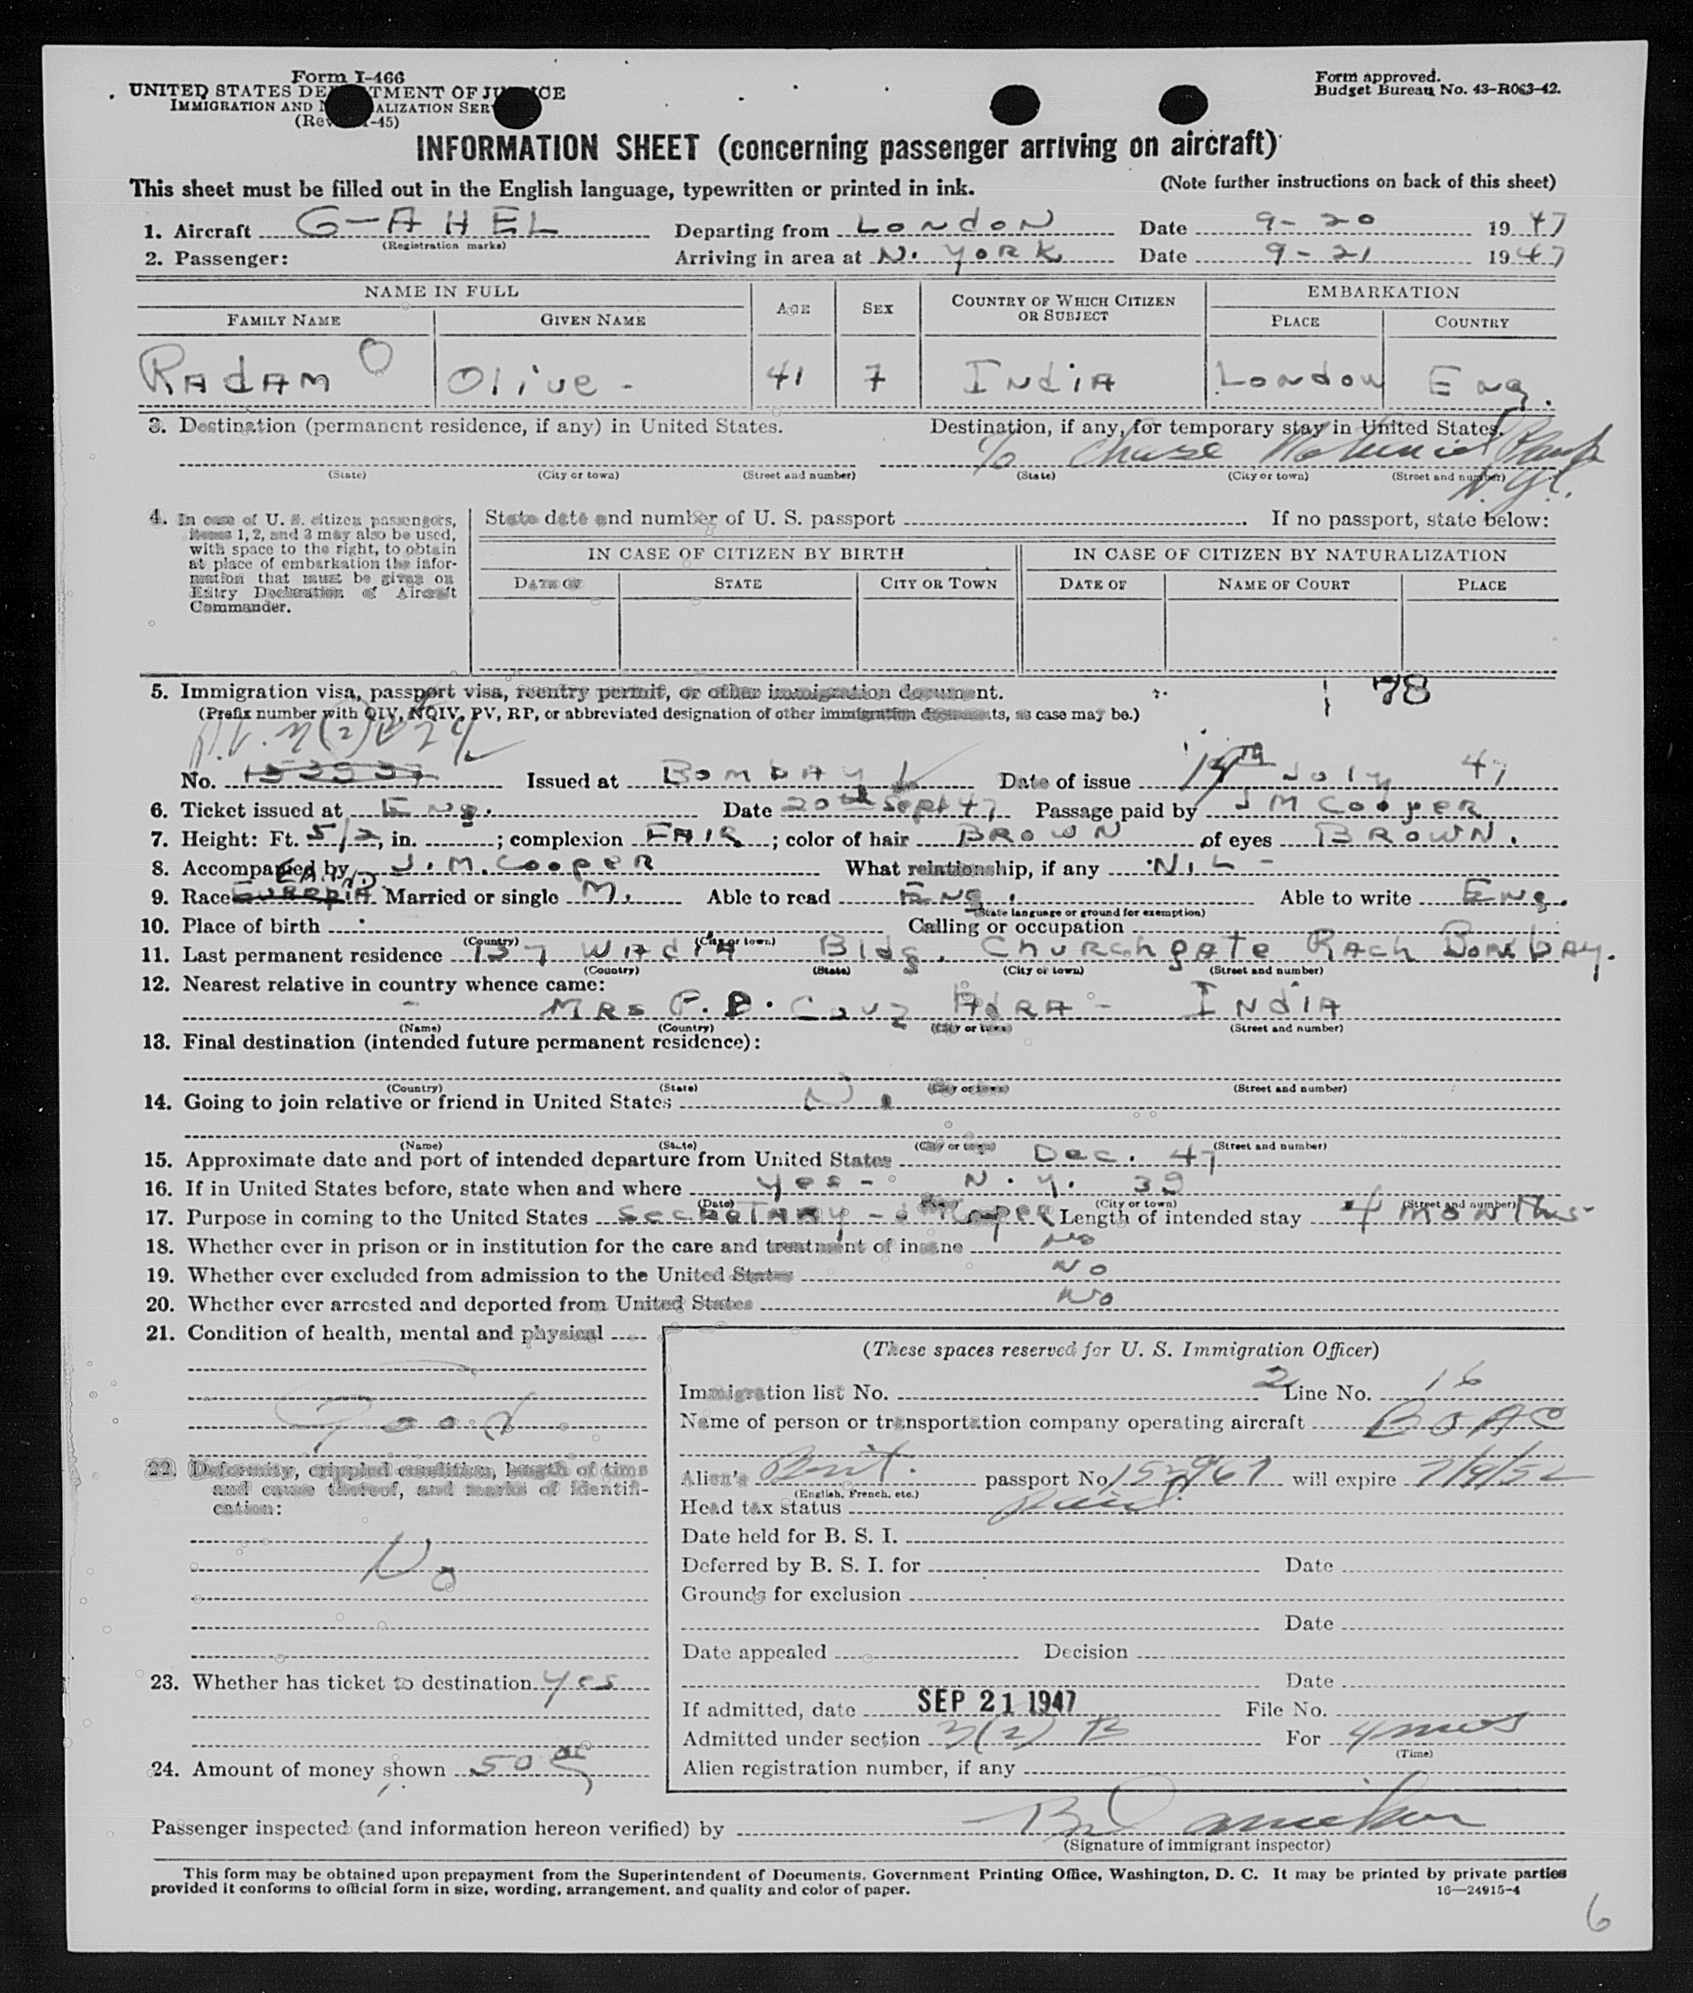 Form I-466
UNITED STATES DEPARTMENT OF JUSTICE
IMMIGRATION AND NATURALIZATION SERVICE
(Rev. -45)
Form approved.
Budget Bureau No. 43-R063-42.
INFORMATION SHEET (concerning passenger arriving on aircraft)
This sheet must be filled out in the English language, typewritten or printed in ink. (Note further instructions on back of this sheet)
1. Aircraft G-AHEL Departing from LONDON Date 9-20 1947
(Registration marks)
2. Passenger: Arriving in area at N. YORK Date 9-21 1947
NAME IN FULL AGE SEX COUNTRY OF WHICH CITIZEN OR SUBJECT EMBARKATION
FAMILY NAME GIVEN NAME PLACE COUNTRY
RADAM O Olive - 41 7 INDIA LONDON ENG.
3. Destination (permanent residence, if any) in United States. Destination, if any, for temporary stay in United States.
% Chase National Bank
(State) (City or town) (Street and number) (State) (City or town) (Street and number)
N.Y.C.
4. In case of U. S. citizen passengers, items 1, 2, and 3 may also be used, with space to the right, to obtain at place of embarkation the information that must be given on Entry Declaration of Aircraft Commander.
State date and number of U. S. passport If no passport, state below:
IN CASE OF CITIZEN BY BIRTH IN CASE OF CITIZEN BY NATURALIZATION
DATE OF STATE CITY OR TOWN DATE OF NAME OF COURT PLACE
5. Immigration visa, passport visa, reentry permit, or other immigration document. 78
(Prefix number with QIV, NQIV, PV, RP, or abbreviated designation of other immigration documents, as case may be.)
No. Issued at BOMBAY Date of issue 14th July 47
6. Ticket issued at ENG. Date 20th Sept 47 Passage paid by J M COOPER
7. Height: Ft. 5/2, in. ; complexion FAIR ; color of hair BROWN of eyes BROWN.
8. Accompanied by J. M. COOPER What relationship, if any NIL -
9. Race E.A. IND. Married or single M. Able to read ENG. Able to write ENG.
(State language or ground for exemption)
10. Place of birth Calling or occupation
(Country) (City or town)
11. Last permanent residence 137 WADIA Bldg. Churchgate RACH BOMBAY.
(Country) (State) (City or town) (Street and number)
12. Nearest relative in country whence came:
- MRS P. D. Cruz ADRA - INDIA
(Name) (Country) (City or town) (Street and number)
13. Final destination (intended future permanent residence):
(Country) (State) (City or town) (Street and number)
14. Going to join relative or friend in United States No
(Name) (State) (City or town) (Street and number)
15. Approximate date and port of intended departure from United States Dec. 47
16. If in United States before, state when and where yes - N. Y. 39
(Date) (City or town) (Street and number)
17. Purpose in coming to the United States Secretary - J M Cooper Length of intended stay 4 months
18. Whether ever in prison or in institution for the care and treatment of insane No
19. Whether ever excluded from admission to the United States No
20. Whether ever arrested and deported from United States No
21. Condition of health, mental and physical
Good
22. Deformity, crippled condition, length of time and cause thereof, and marks of identification:
No
23. Whether has ticket to destination yes
24. Amount of money shown 50
(These spaces reserved for U. S. Immigration Officer)
Immigration list No. 2 Line No. 16
Name of person or transportation company operating aircraft BOAC
Alien's Brit. passport No. 153967 will expire 7/9/52
(English, French, etc.)
Head tax status paid
Date held for B. S. I.
Deferred by B. S. I. for Date
Grounds for exclusion
Date
Date appealed Decision
Date
If admitted, date SEP 21 1947 File No.
Admitted under section 3(2) B For 4 mos
(Time)
Alien registration number, if any
Passenger inspected (and information hereon verified) by
(Signature of immigrant inspector)
This form may be obtained upon prepayment from the Superintendent of Documents, Government Printing Office, Washington, D. C. It may be printed by private parties
provided it conforms to official form in size, wording, arrangement, and quality and color of paper. 16—24915-4
6